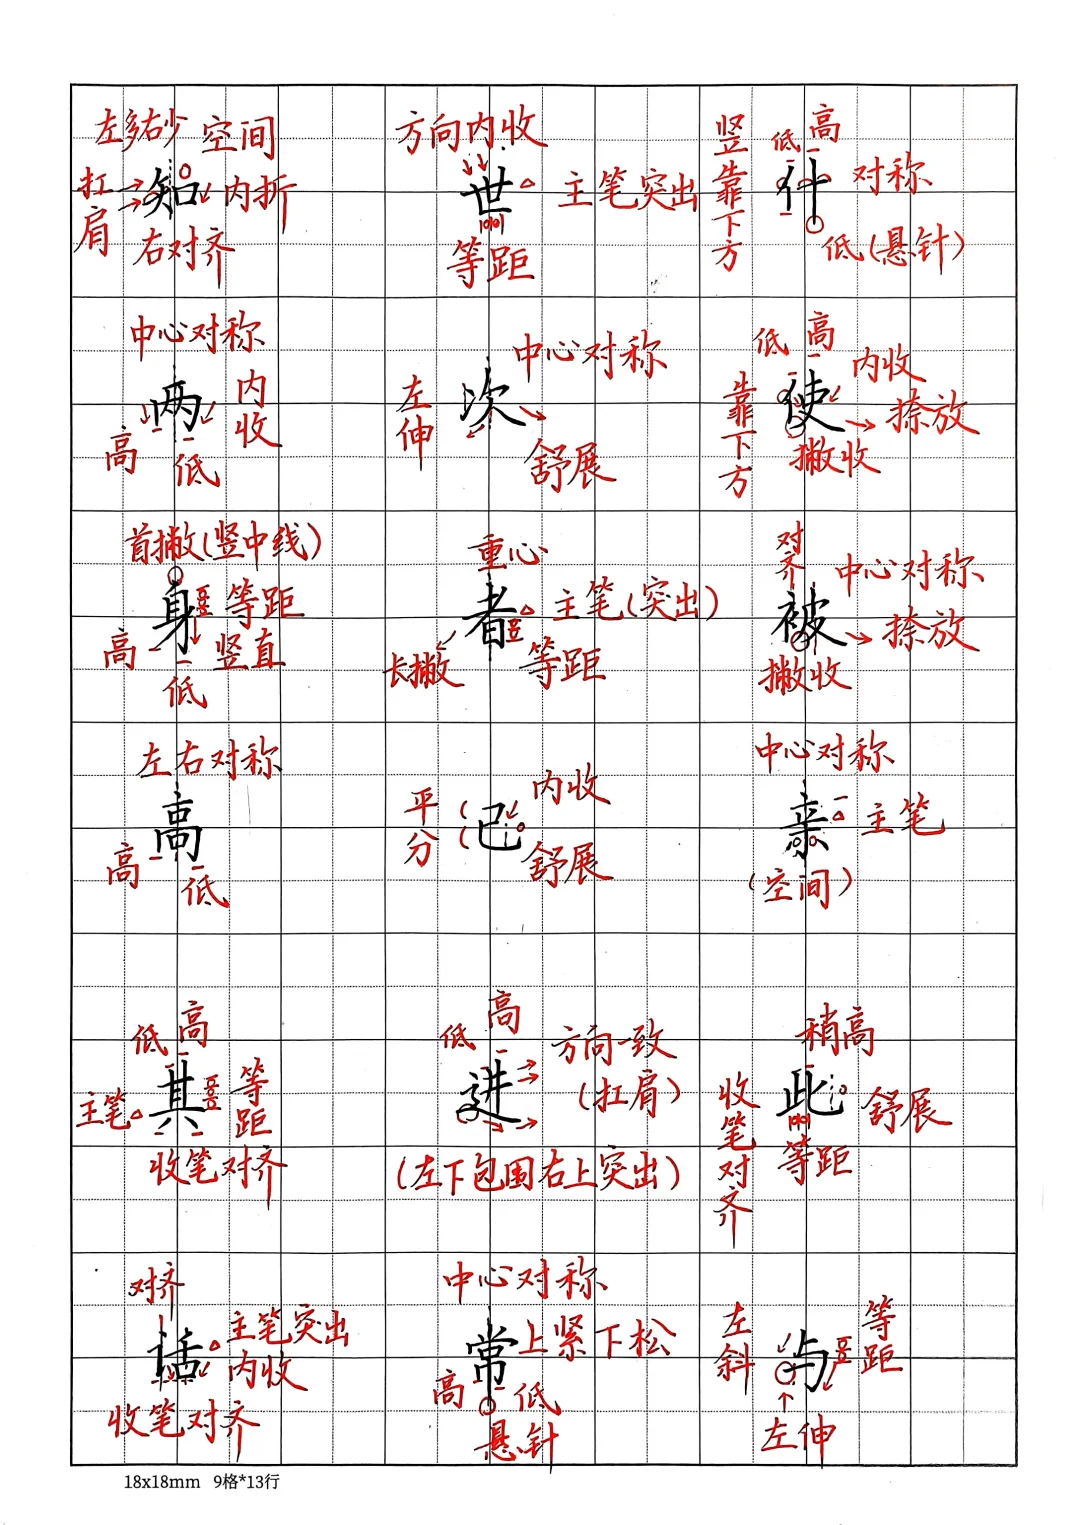 左多右少 空间
扛肩 知 内折
右对齐
方向内收
世 主笔突出
等距
竖靠下方
低 高
什 对称
低(悬针)
中心对称
两 内收
高 低
中心对称
左伸 次
舒展
靠下方
低 高
使 内收
捺放
撇收
首撇(竖中线)
身 等距
高 竖直
低
重心
者 主笔(突出)
长撇 等距
对齐
被 中心对称
捺放
撇收
左右对称
高
高 低
平分 已 内收
舒展
中心对称
亲 主笔
(空间)
低 高
主笔 其 等距
收笔对齐
低 高
进 方向一致
(扛肩)
(左下包围右上突出)
稍高
收笔对齐 此 舒展
等距
对齐
话 主笔突出
内收
收笔对齐
中心对称
常 上紧下松
高 低
悬针
左斜 与 等距
左伸
18x18mm 9格*13行